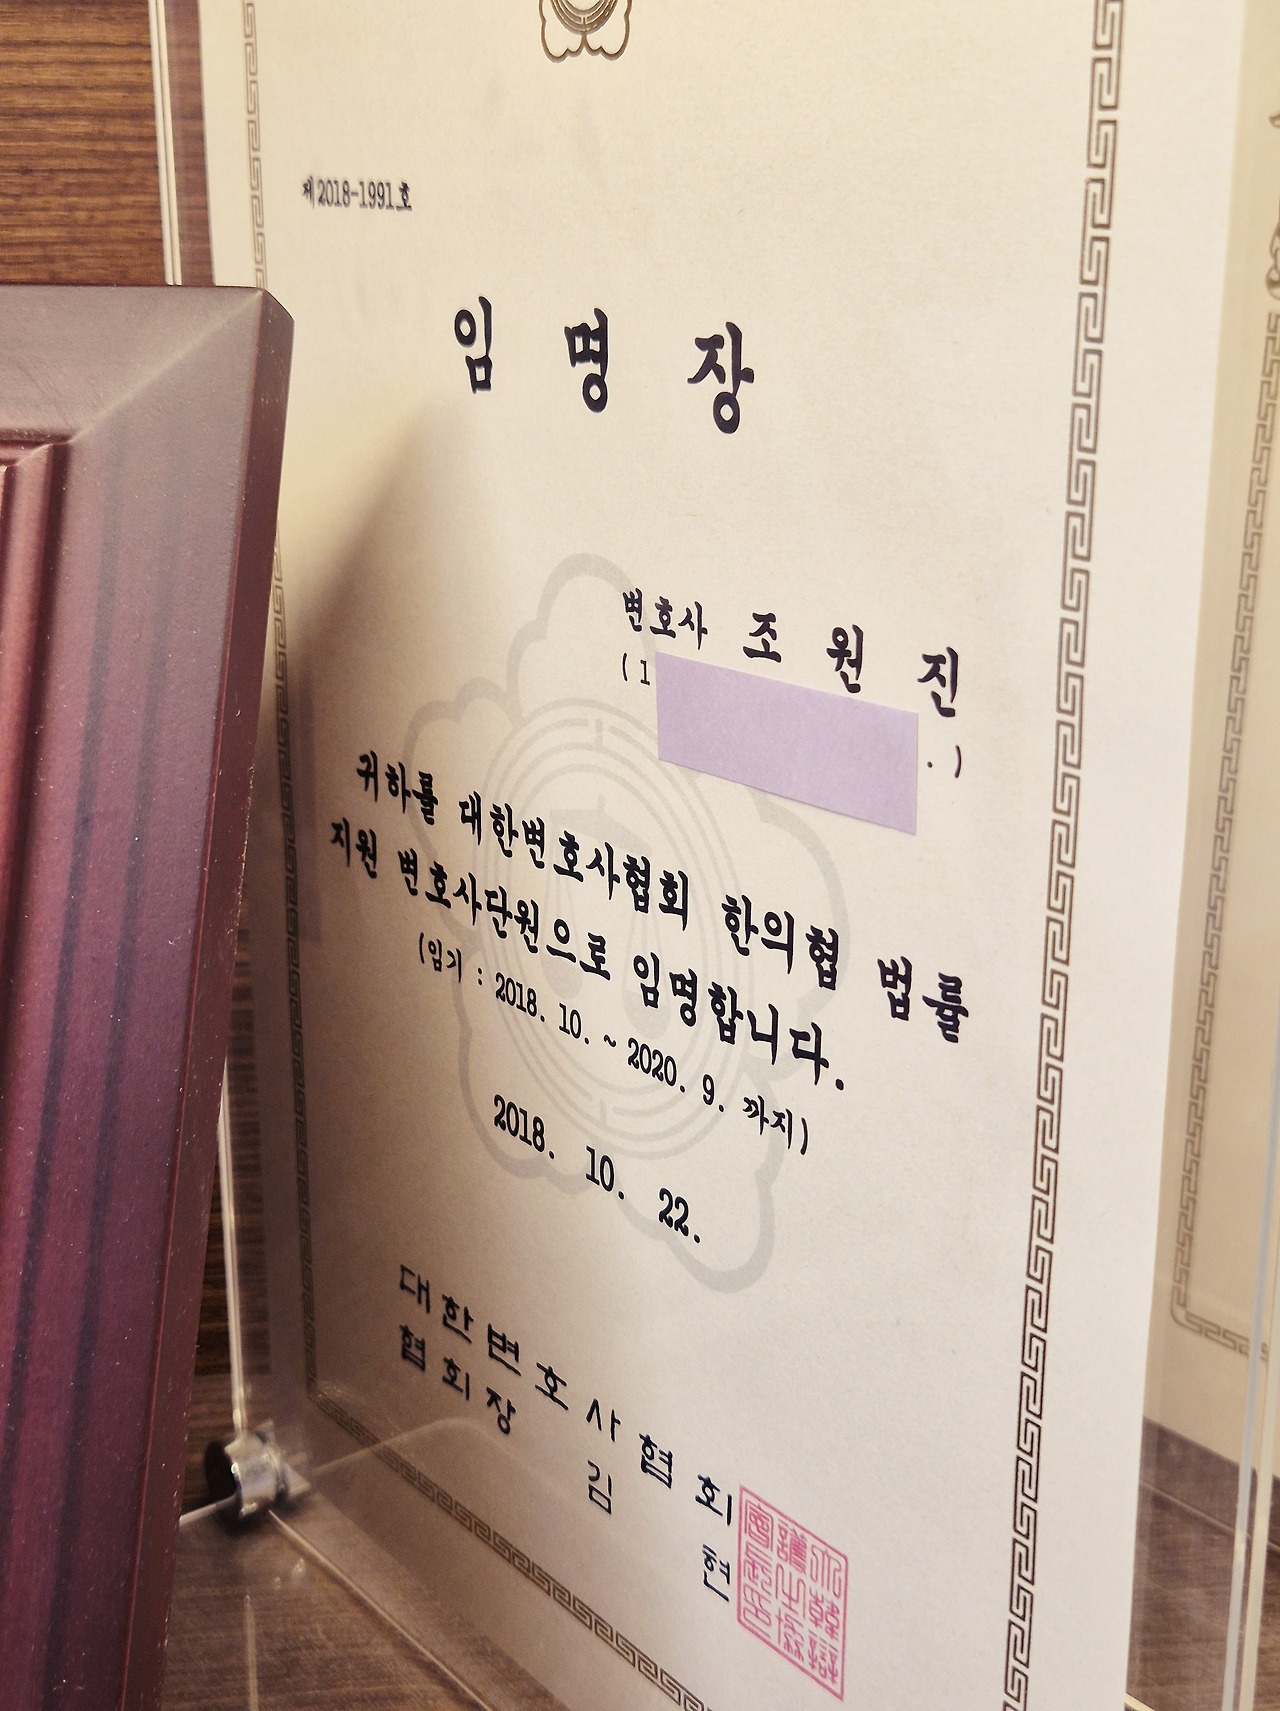 제2018-1991호
임 명 장
변호사 조 원 진
(1 .)
귀하를 대한변호사협회 한의협 법률
지원 변호사단원으로 임명합니다.
(임기 : 2018. 10. ~ 2020. 9. 까지)
2018. 10. 22.
대 한 변 호 사 협 회
협 회 장 김 현